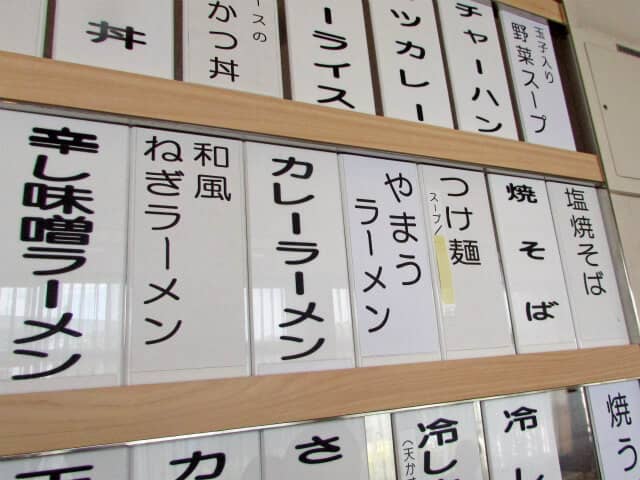 玉子入り
野菜スープ
チャーハン
ツカレー
ーライス
ースの
かつ丼
丼
塩焼そば
焼そば
つけ麺
スープ/
やまうラーメン
カレーラーメン
和風
ねぎラーメン
辛し味噌ラーメン
焼う
冷し
冷し
(天かす
さ
カ